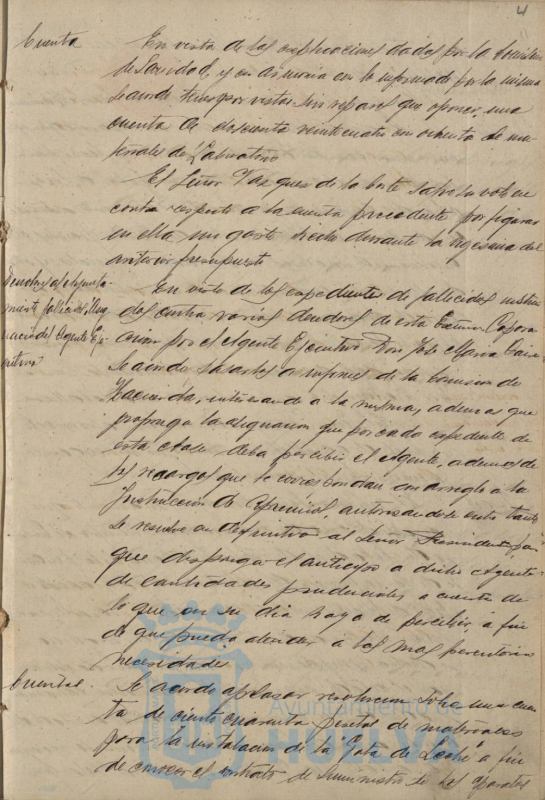 4
Cuenta
En vista de las explicaciones dadas por la Comisión
de Sanidad, y en armonia con lo informado por la misma
se acordó tener por vistas sin reparos que oponer, una
cuenta de doscientas veinticuatro con ochenta de ma-
teriales de Laboratorio
El Señor Vazquez de la Corte salva su voto en
contra respecto a la cuenta precedente por figurar
en ella un gasto hecho durante la vigencia del
anterior presupuesto
Deudores al
fallidos
Agente Eje-
cutivo
En vista de los expedientes de fallidos instrui-
dos contra varios deudores de esta Excma. Corpora-
ción por el Agente Ejecutivo Don José Maria
se acordó pasarlos a informes de la Comision de
Hacienda, interesando a la misma, ademas que
proponga la asignacion que por cada expediente de
esta clase deba percibir el Agente, ademas de
los recargos que le correspondian con arreglo a la
Instrucción de Apremios, autorisandose entre tanto
se resuelve en definitivo al Señor Presidente para
que disponga el anticipo a dicho Agente
de cantidades prudenciales a cuenta de
lo que en su dia haya de percibir, a fin
de que pueda atender a las mas perentorias
necesidades
Cuentas.
Se acordó aplasar resolucion sobre una cuen-
ta de ciento cuarenta pesetas de materiales
para la instalacion de la "Gota de Leche" a fin
de conocer el contrato de suministro de los aparatos
Ayuntamiento de
HUELVA